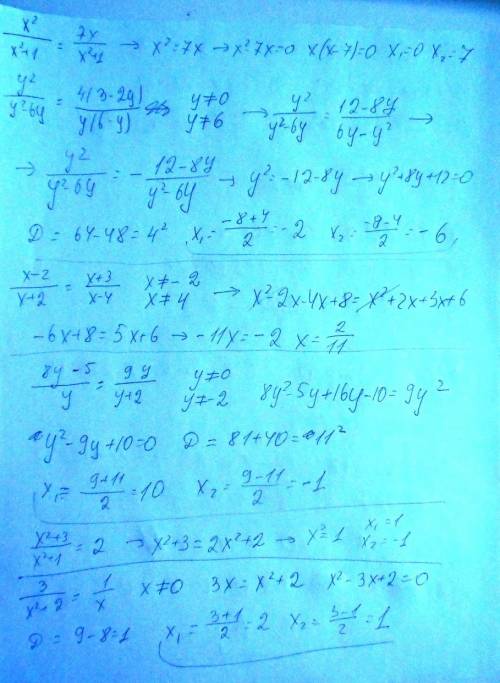 x²/(x²+1) = 7x/(x²+1) → x²=7x → x²-7x=0 x(x-7)=0 x₁=0 x₂=7
y²/(y²-6y) = 4(3-2y)/(y(6-y)) y≠0 y≠6 → y²/(y²-6y) = (12-8y)/(6y-y²) →
→ y²/(y²-6y) = -(12-8y)/(y²-6y) → y²=-12-8y → y²+8y+12=0
D = 64-48=4² x₁=(-8+4)/2=-2 x₂=(-8-4)/2=-6
(x-2)/(x+2) = (x+3)/(x-4) x≠-2 x≠4 → x²-2x-4x+8=x²+2x+3x+6
-6x+8=5x+6 → -11x=-2 x=2/11
(8y-5)/y = 9y/(y+2) y≠0 y≠-2 8y²-5y+16y-10=9y²
y²-9y+10=0 D=81+40=11²
x₁=(9+11)/2=10 x₂=(9-11)/2=-1
(x²+3)/(x²+1)=2 → x²+3=2x²+2 → x²=1 x₁=1 x₂=-1
3/(x²+2)=1/x x≠0 3x=x²+2 x²-3x+2=0
D=9-8=1 x₁=(3+1)/2=2 x₂=(3-1)/2=1